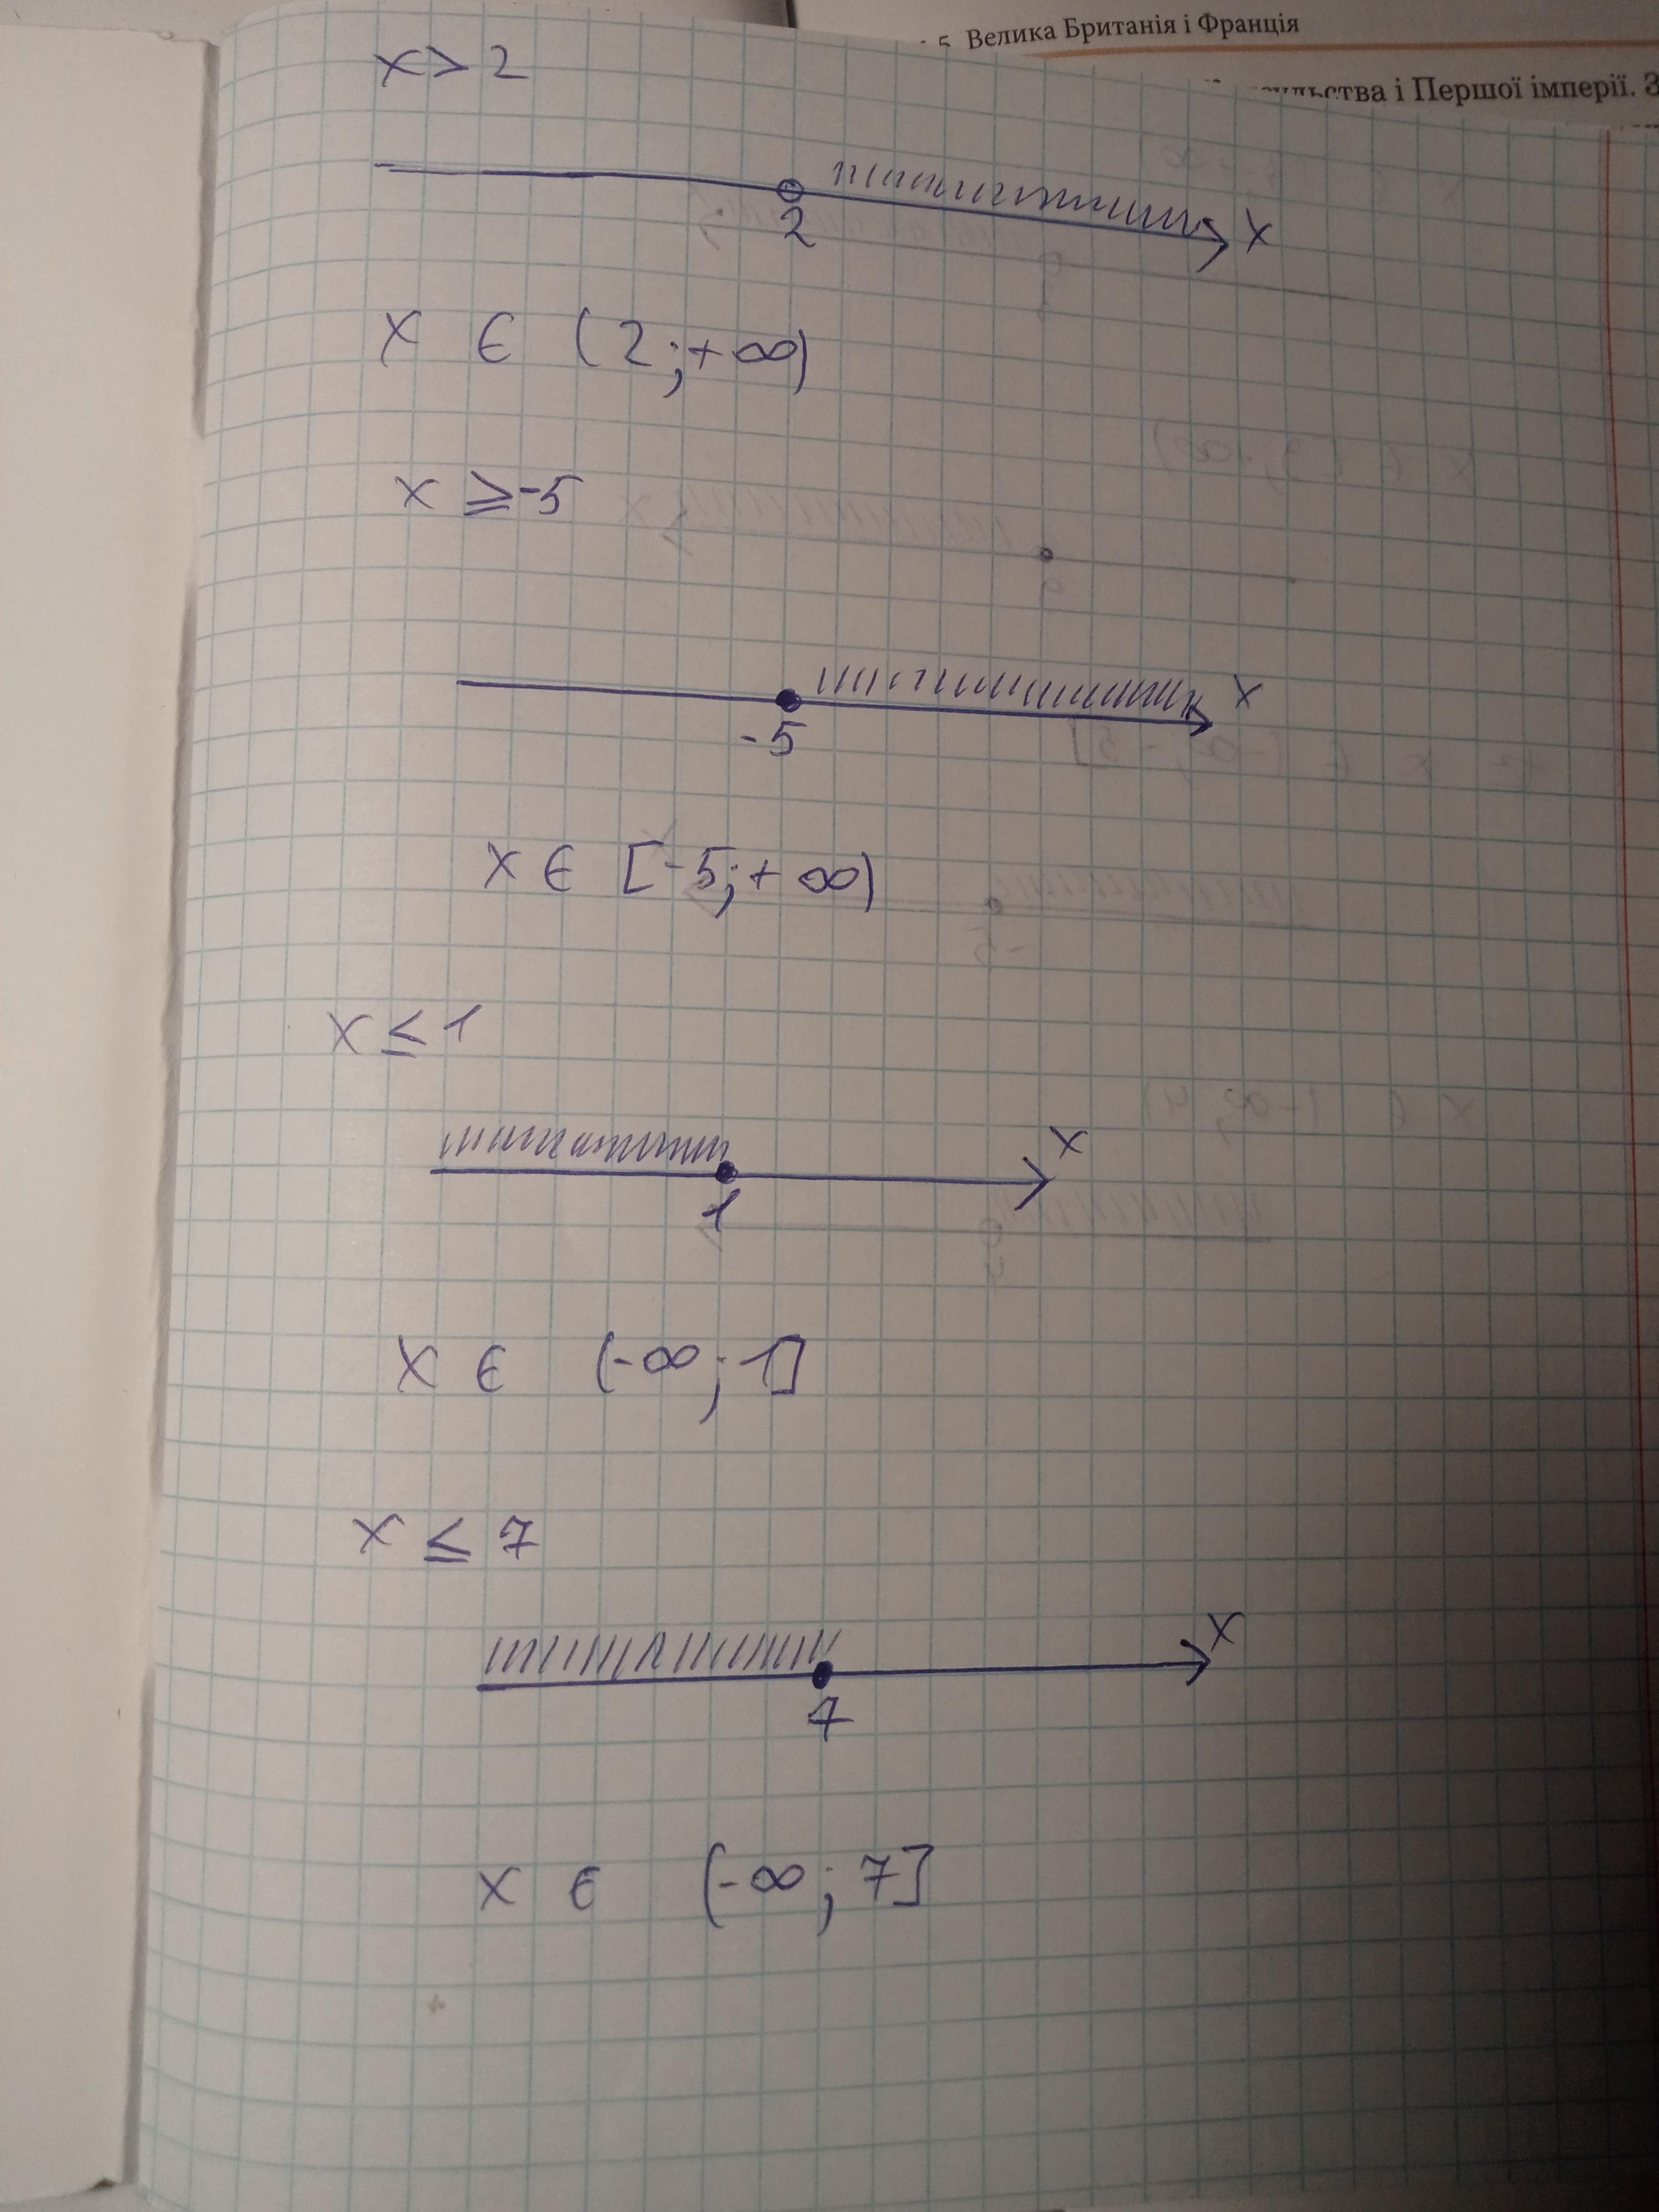 5. Велика Британія і Франція
і Першої імперії. З
x > 2
2 x
x ∈ (2; +∞)
x ≥ -5
x
-5
x ∈ [-5; +∞)
x ≤ 1
x
1
x ∈ (-∞; 1]
x ≤ 7
x
7
x ∈ (-∞; 7]